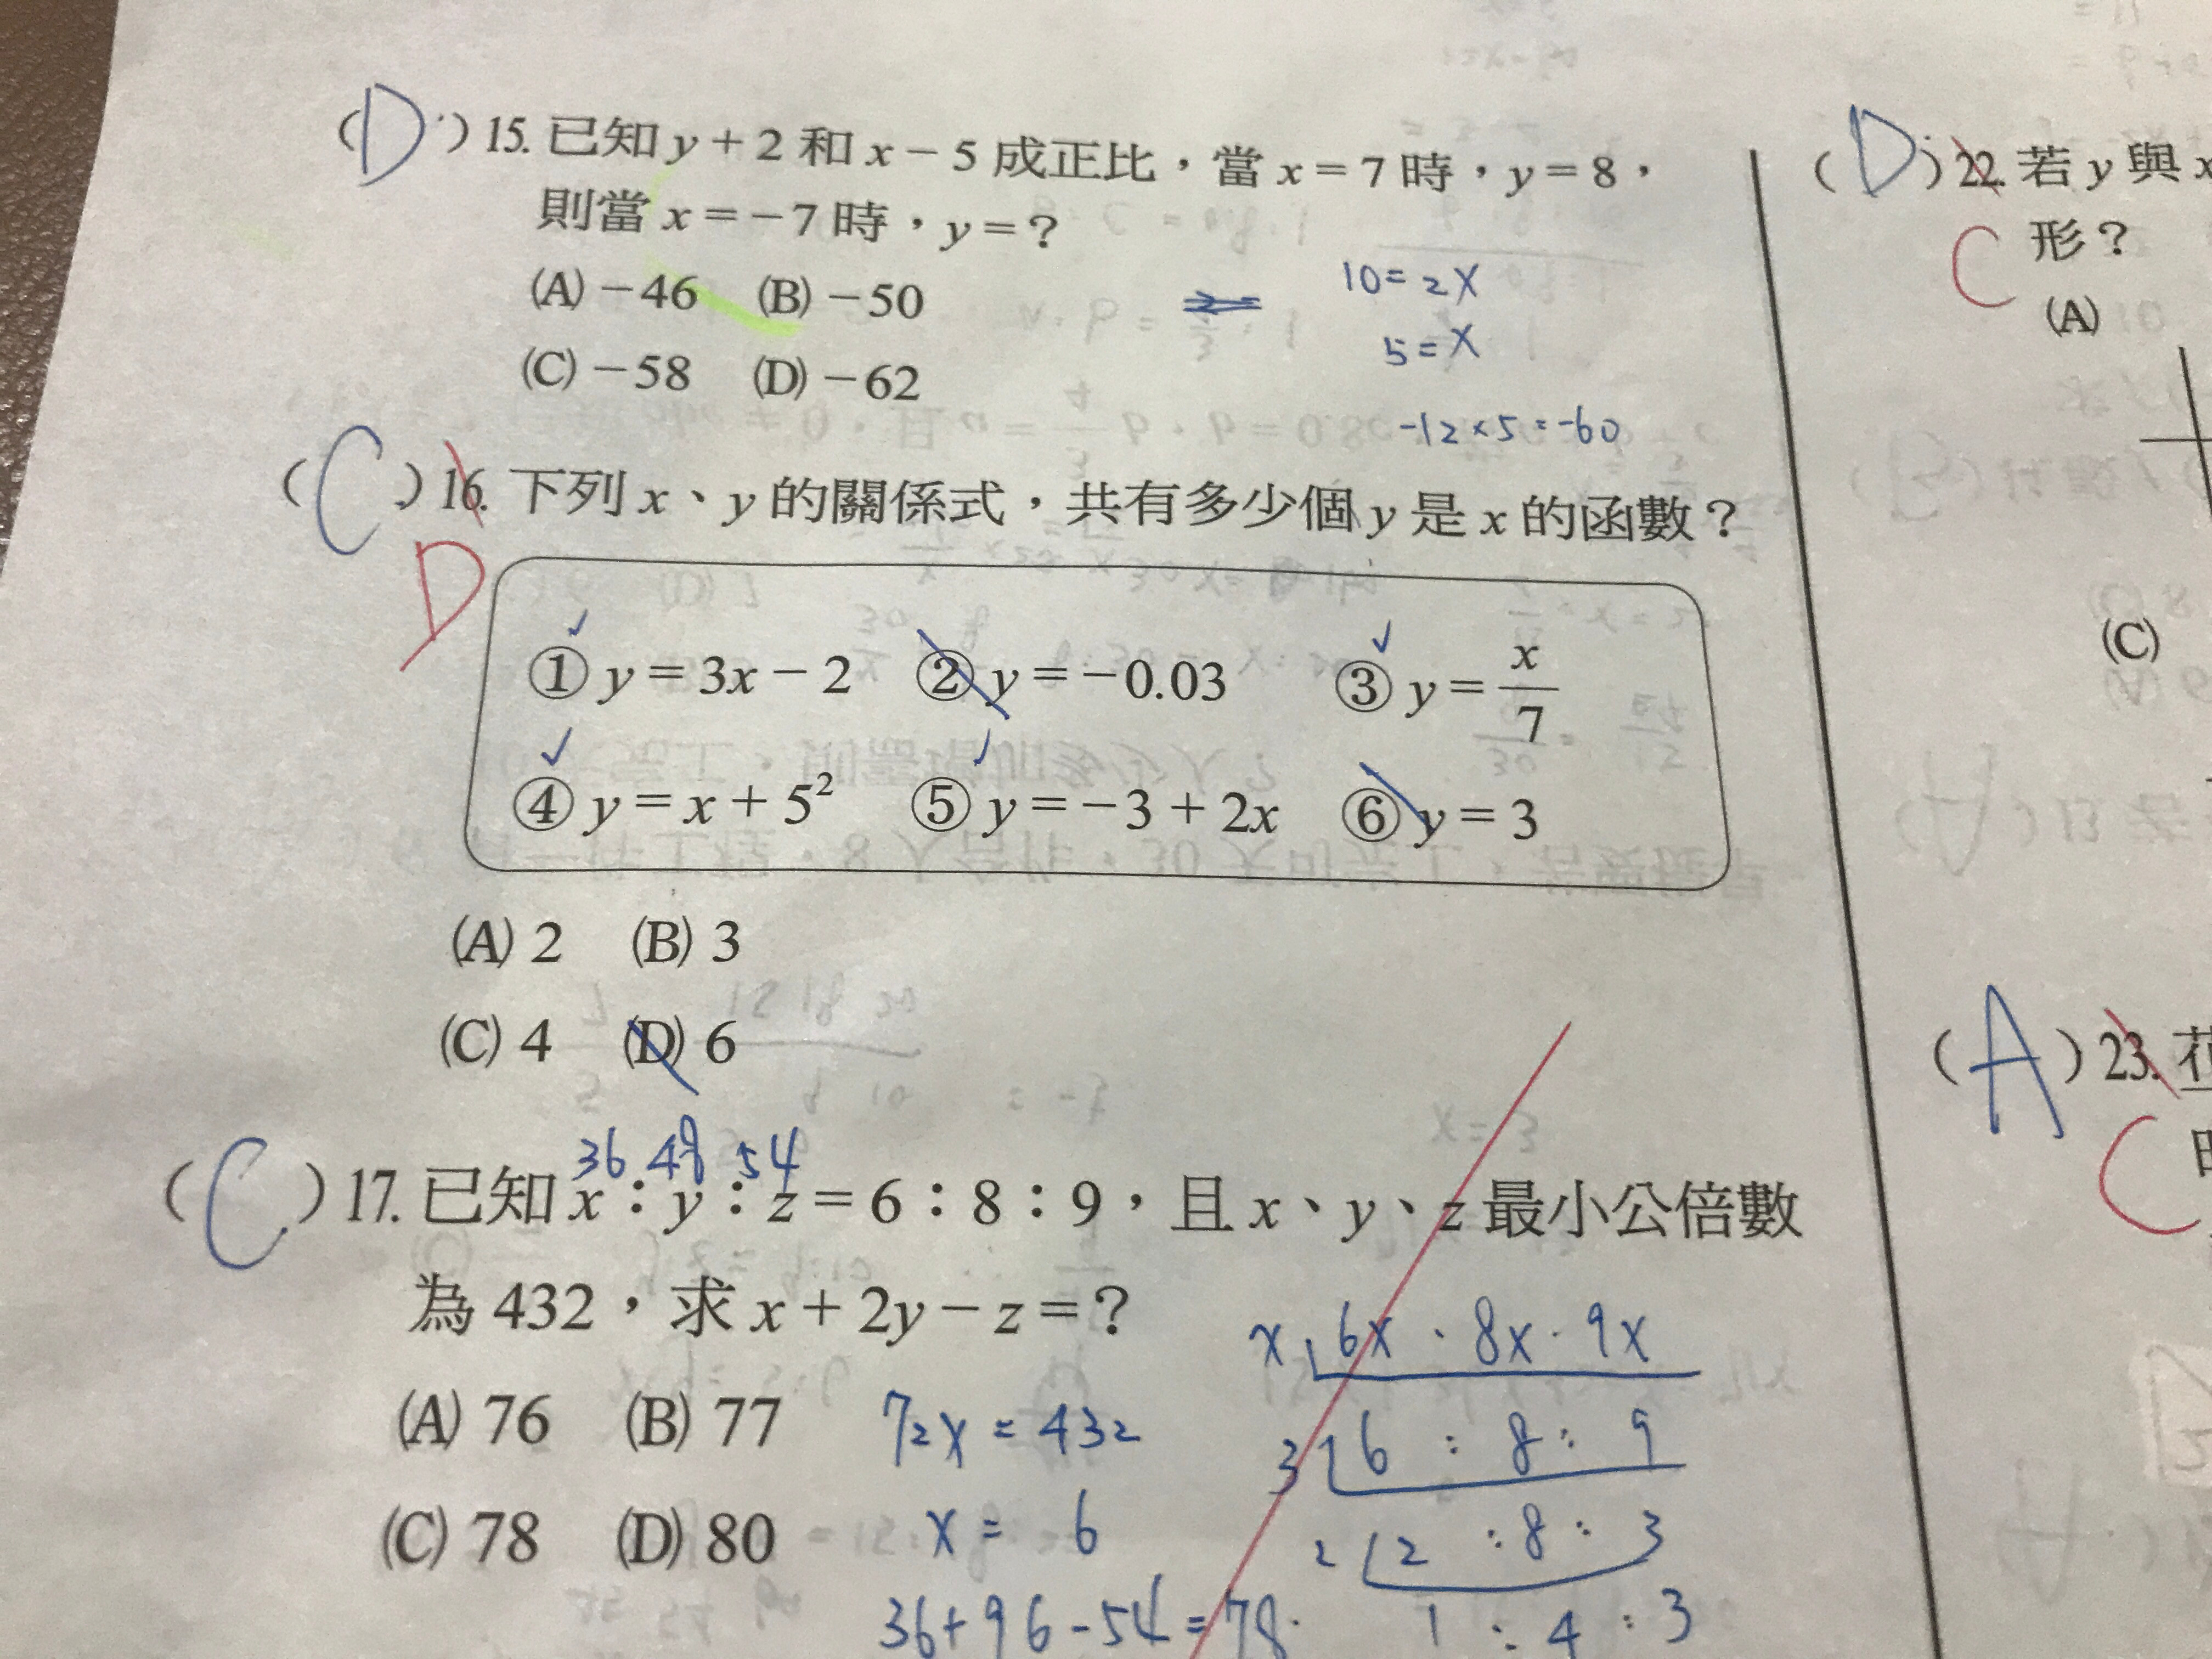 (D) 15. 已知 y + 2 和 x − 5 成正比，當 x = 7 時，y = 8，
則當 x = −7 時，y = ?
(A) −46 (B) −50
(C) −58 (D) −62
10 = 2x
5 = x
−12 × 5 = −60
(C) 16. 下列 x、y 的關係式，共有多少個 y 是 x 的函數？
D
① y = 3x − 2 ② y = −0.03 ③ y = x/7
④ y = x + 5² ⑤ y = −3 + 2x ⑥ y = 3
(A) 2 (B) 3
(C) 4 (D) 6
36 48 54
(C) 17. 已知 x：y：z = 6：8：9，且 x、y、z 最小公倍數
為 432，求 x + 2y − z = ?
(A) 76 (B) 77
(C) 78 (D) 80
72x = 432
x = 6
36 + 96 − 54 = 78
x 6x · 8x · 9x
3 6 : 8 : 9
2 2 : 8 : 3
1 : 4 : 3
(D) 22. 若 y 與 x
形？
C
(A)
(C)
(A) 23.
C